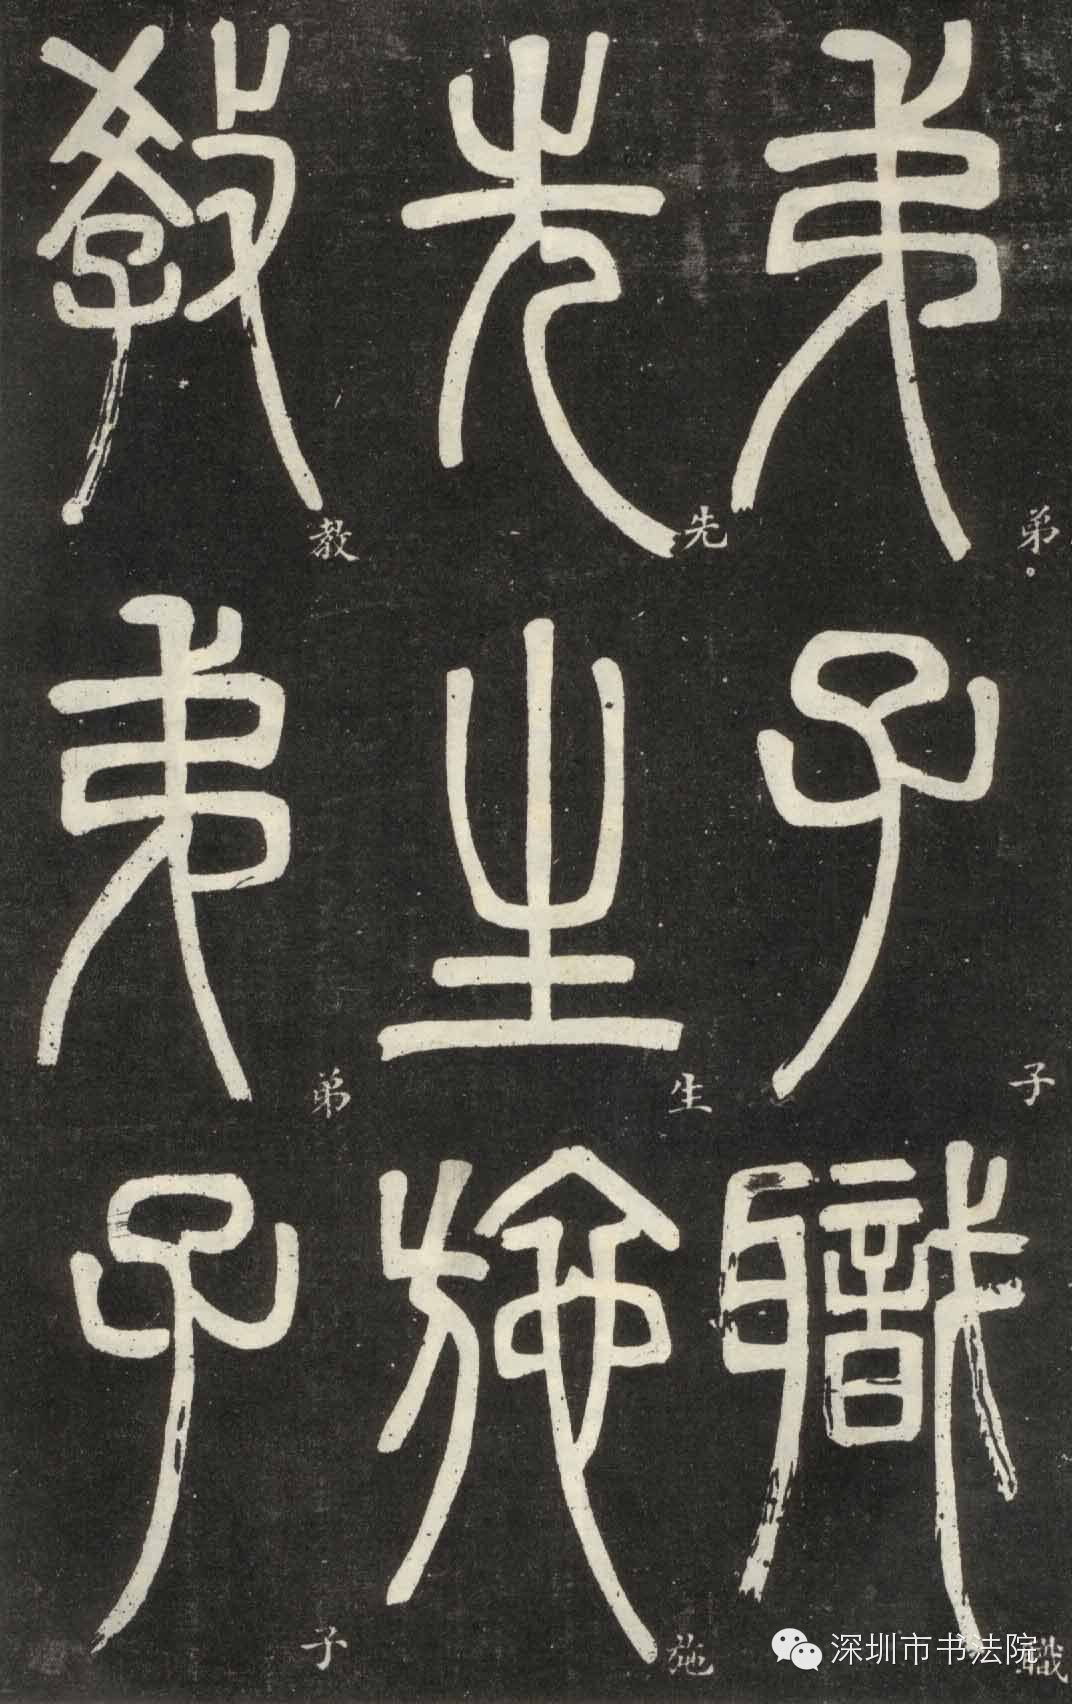 弟子職
先生施
教弟子
弟。
子
職
先
生
施
教
弟
子
深圳市书法院